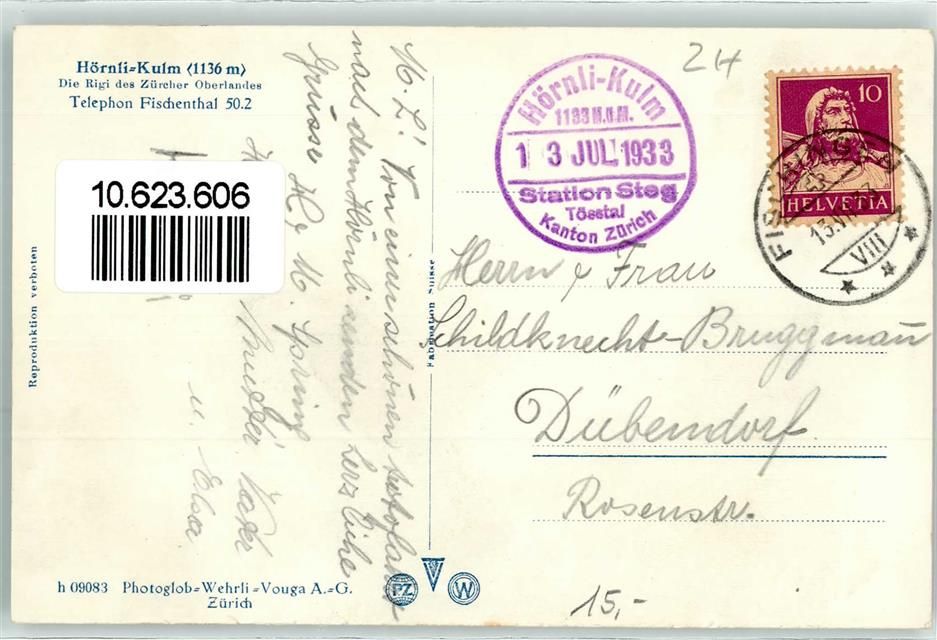 Hörnli-Kulm (1136 m)
Die Rigi des Zürcher Oberlandes
Telephon Fischenthal 50.2
10.623.606
Reproduktion verboten
M. L! Von einem schönen
nach dem Hörnli senden herzliche
Grüsse
M.
Mutter Vater
u. Elsa
Fabrication Suisse
Hörnli-Kulm
1133 M.ü.M.
1 3 JUL. 1933
Station Steg
Tösstal
Kanton Zürich
24
10
HELVETIA
VIII
Herrn & Frau
Schildknecht-Bruggmann
Dübendorf.
Rosenstr.
15,-
h 09083 Photoglob-Wehrli-Vouga A.-G.
Zürich
PZ
V
W